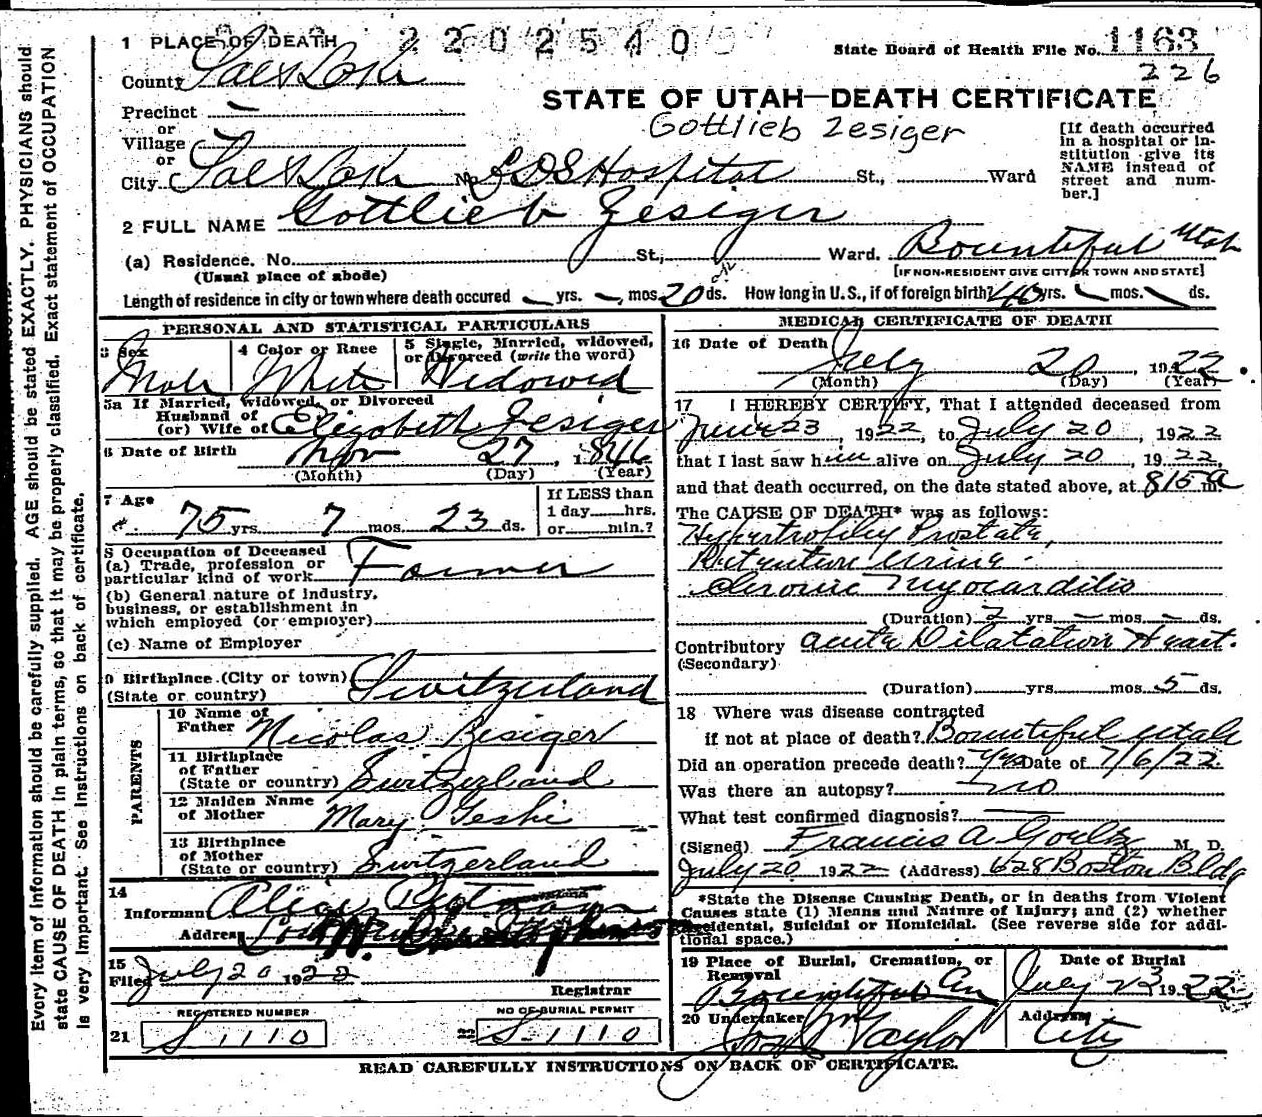 1 PLACE OF DEATH
2202540
State Board of Health File No. 1163
226
County Salt Lake
STATE OF UTAH—DEATH CERTIFICATE
Gottlieb Zesiger
Precinct —
or
Village
or
City Salt Lake No. LDS Hospital St., Ward
[If death occurred in a hospital or institution give its NAME instead of street and number.]
2 FULL NAME Gottlieb Zesiger
(a) Residence. No. St., Ward. Bountiful Utah
(Usual place of abode)
[IF NON-RESIDENT GIVE CITY OR TOWN AND STATE]
Length of residence in city or town where death occured — yrs. — mos. 20 ds. How long in U.S., if of foreign birth? yrs. — mos. ds.
PERSONAL AND STATISTICAL PARTICULARS
3 Sex Male
4 Color or Race White
5 Single, Married, widowed, or Divorced (write the word) Widowed
5a If Married, widowed, or Divorced
Husband of
(or) Wife of Elizabeth Zesiger
6 Date of Birth Nov 27, 1846
(Month) (Day) (Year)
7 Age 75 yrs. 7 mos. 23 ds.
If LESS than
1 day hrs.
or min.?
8 Occupation of Deceased
(a) Trade, profession or
particular kind of work Farmer
(b) General nature of industry,
business, or establishment in
which employed (or employer)
(c) Name of Employer
9 Birthplace (City or town)
(State or country) Switzerland
PARENTS
10 Name of
Father Nicolas Zesiger
11 Birthplace
of Father
(State or country) Switzerland
12 Maiden Name
of Mother Mary
13 Birthplace
of Mother
(State or country) Switzerland
14
Informant Alice
Address
15
Filed July 20 1922
Registrar
REGISTERED NUMBER
21 S 1110
NO OF BURIAL PERMIT
22 S-1110
MEDICAL CERTIFICATE OF DEATH
16 Date of Death July 20, 1922.
(Month) (Day) (Year)
17 I HEREBY CERTIFY, That I attended deceased from
June 23, 1922, to July 20, 1922
that I last saw him alive on July 20, 1922,
and that death occurred, on the date stated above, at 815 a m.
The CAUSE OF DEATH* was as follows:
Hypertrophy Prostate,
Retention urine.
Chronic Myocarditis
(Duration) 2 yrs. — mos. — ds.
Contributory Acute Dilatation Heart.
(Secondary)
(Duration) yrs. mos. 5 ds.
18 Where was disease contracted
if not at place of death? Bountiful Utah
Did an operation precede death? yes Date of 7/6/22.
Was there an autopsy? no
What test confirmed diagnosis? —
(Signed) Francis A Goeltz M. D.
July 20 1922 (Address) 628 Boston Bldg
*State the Disease Causing Death, or in deaths from Violent
Causes state (1) Means and Nature of Injury; and (2) whether
Accidental, Suicidal or Homicidal. (See reverse side for addi-
tional space.)
19 Place of Burial, Cremation, or
Removal
Bountiful
Date of Burial
July 23, 1922
20 Undertaker
Taylor
Address
City
READ CAREFULLY INSTRUCTIONS ON BACK OF CERTIFICATE.
Every item of information should be carefully supplied. AGE should be stated EXACTLY. PHYSICIANS should
state CAUSE OF DEATH in plain terms, so that it may be properly classified. Exact statement of OCCUPATION
is very important. See instructions on back of certificate.